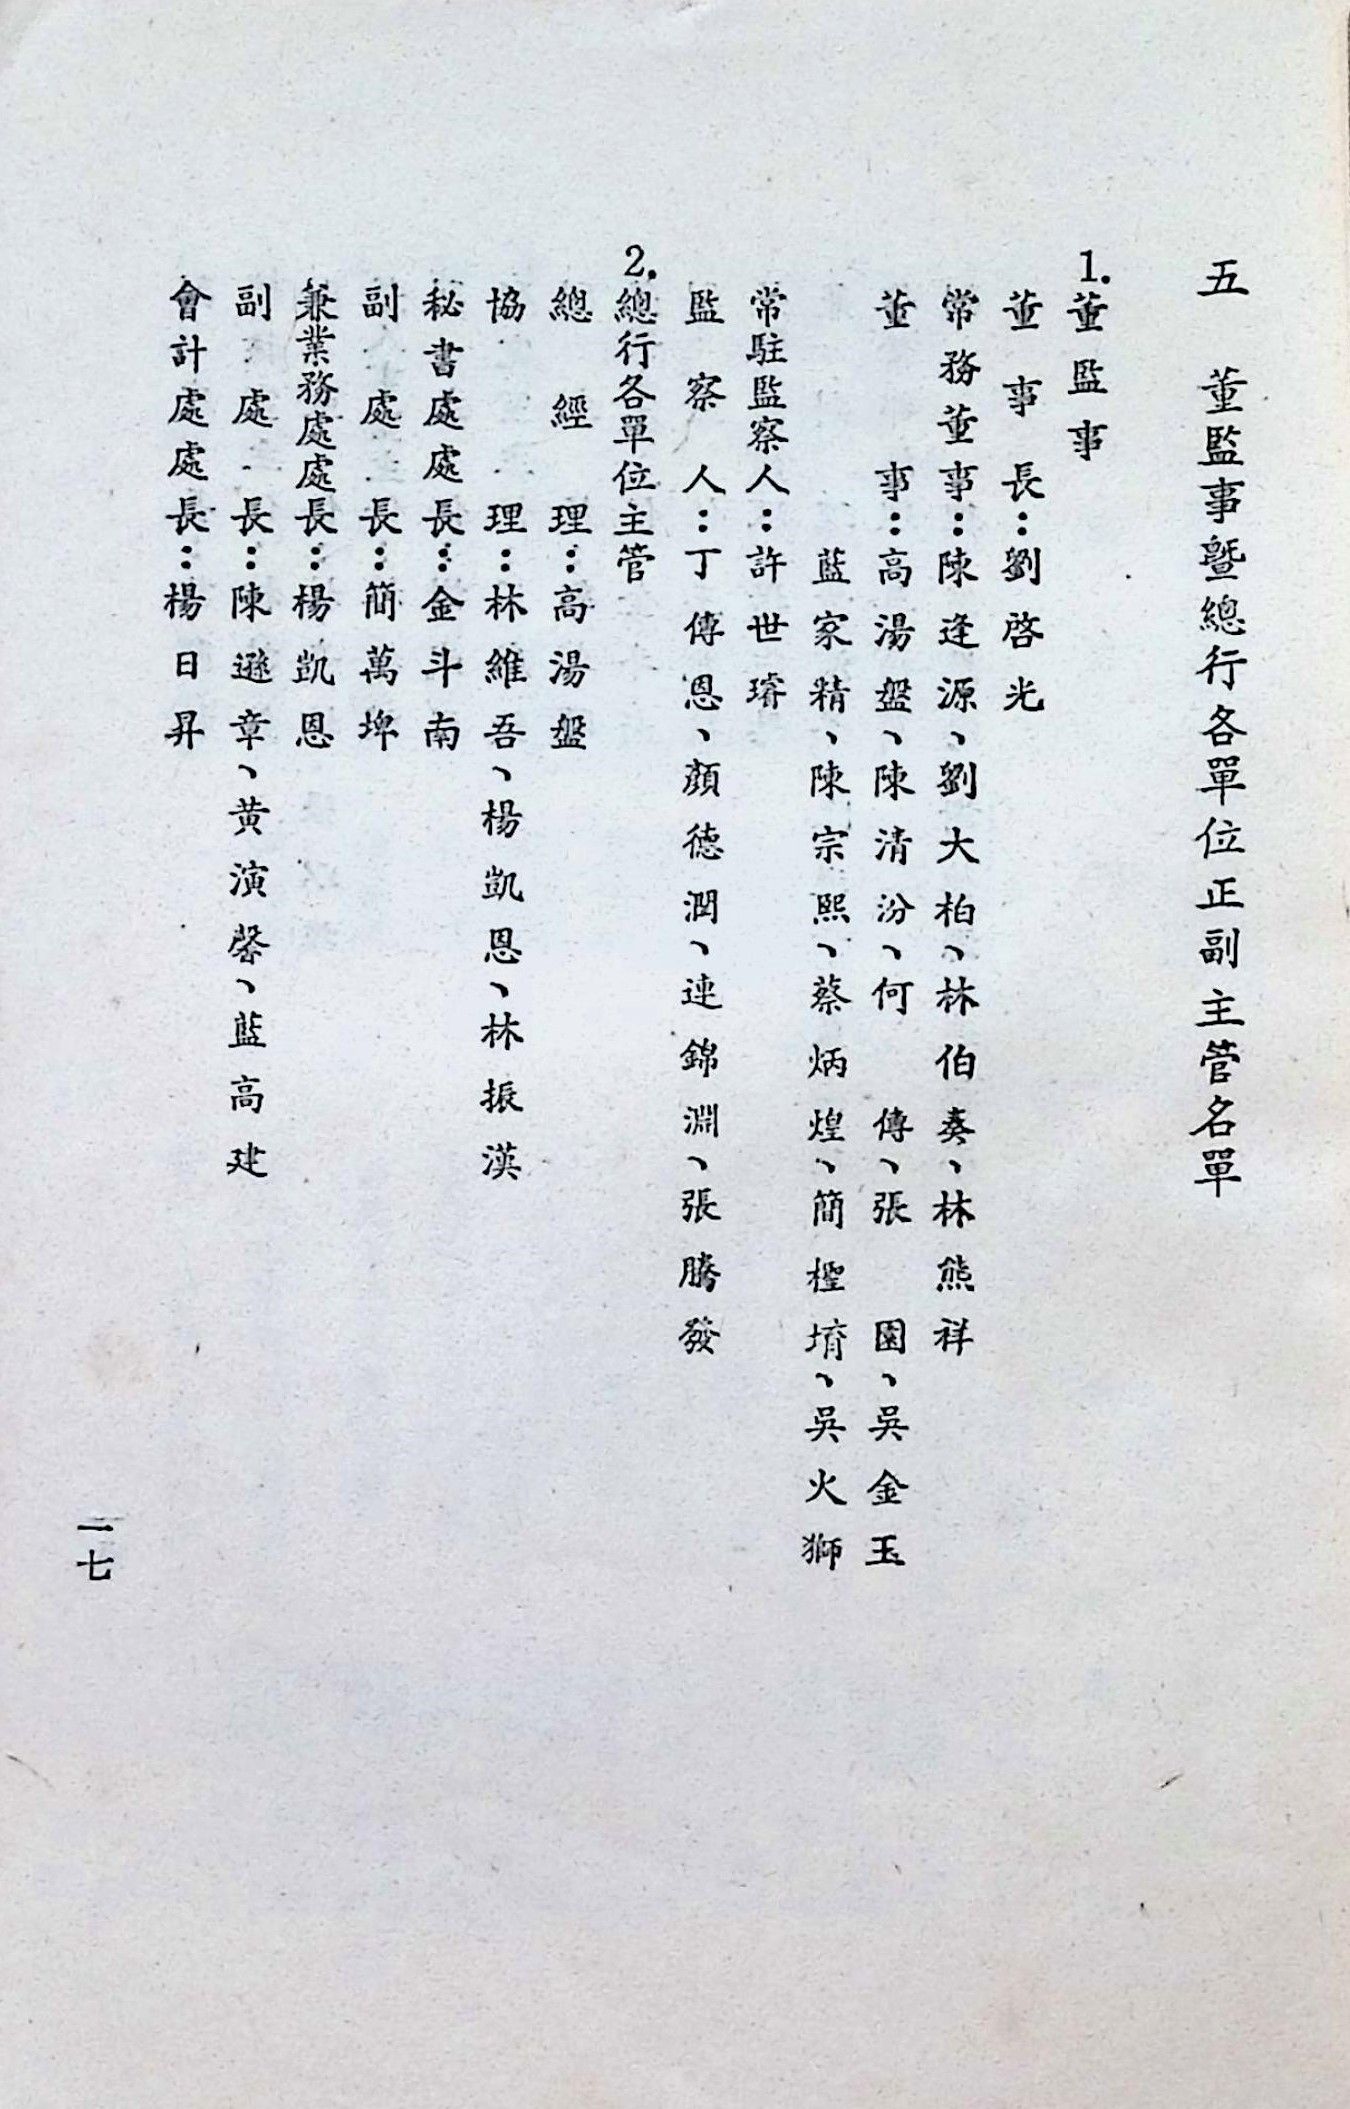 五　董監事暨總行各單位正副主管名單
1.董監事
董事長：劉啓光
常務董事：陳逢源、劉大柏、林伯奏、林熊祥
董事：高湯盤、陳清汾、何傳、張園、吳金玉
藍家精、陳宗熙、蔡炳煌、簡檉堉、吳火獅
常駐監察人：許世璿
監察人：丁傳恩、顏德潤、連錦淵、張騰發
2.總行各單位主管
總經理：高湯盤
協理：林維吾、楊凱恩、林振漢
秘書處處長：金斗南
副處長：簡萬埤
兼業務處處長：楊凱恩
副處長：陳遜章、黃演馨、藍高建
會計處處長：楊日昇
一七